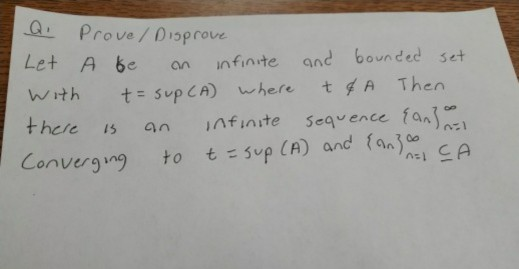 Q. Prove/Disprove
Let A be an infinite and bounded set
With t = sup(A) where t ∉ A Then
there is an infinite sequence {an}∞n=1
Converging to t = sup(A) and {an}∞n=1 ⊆ A